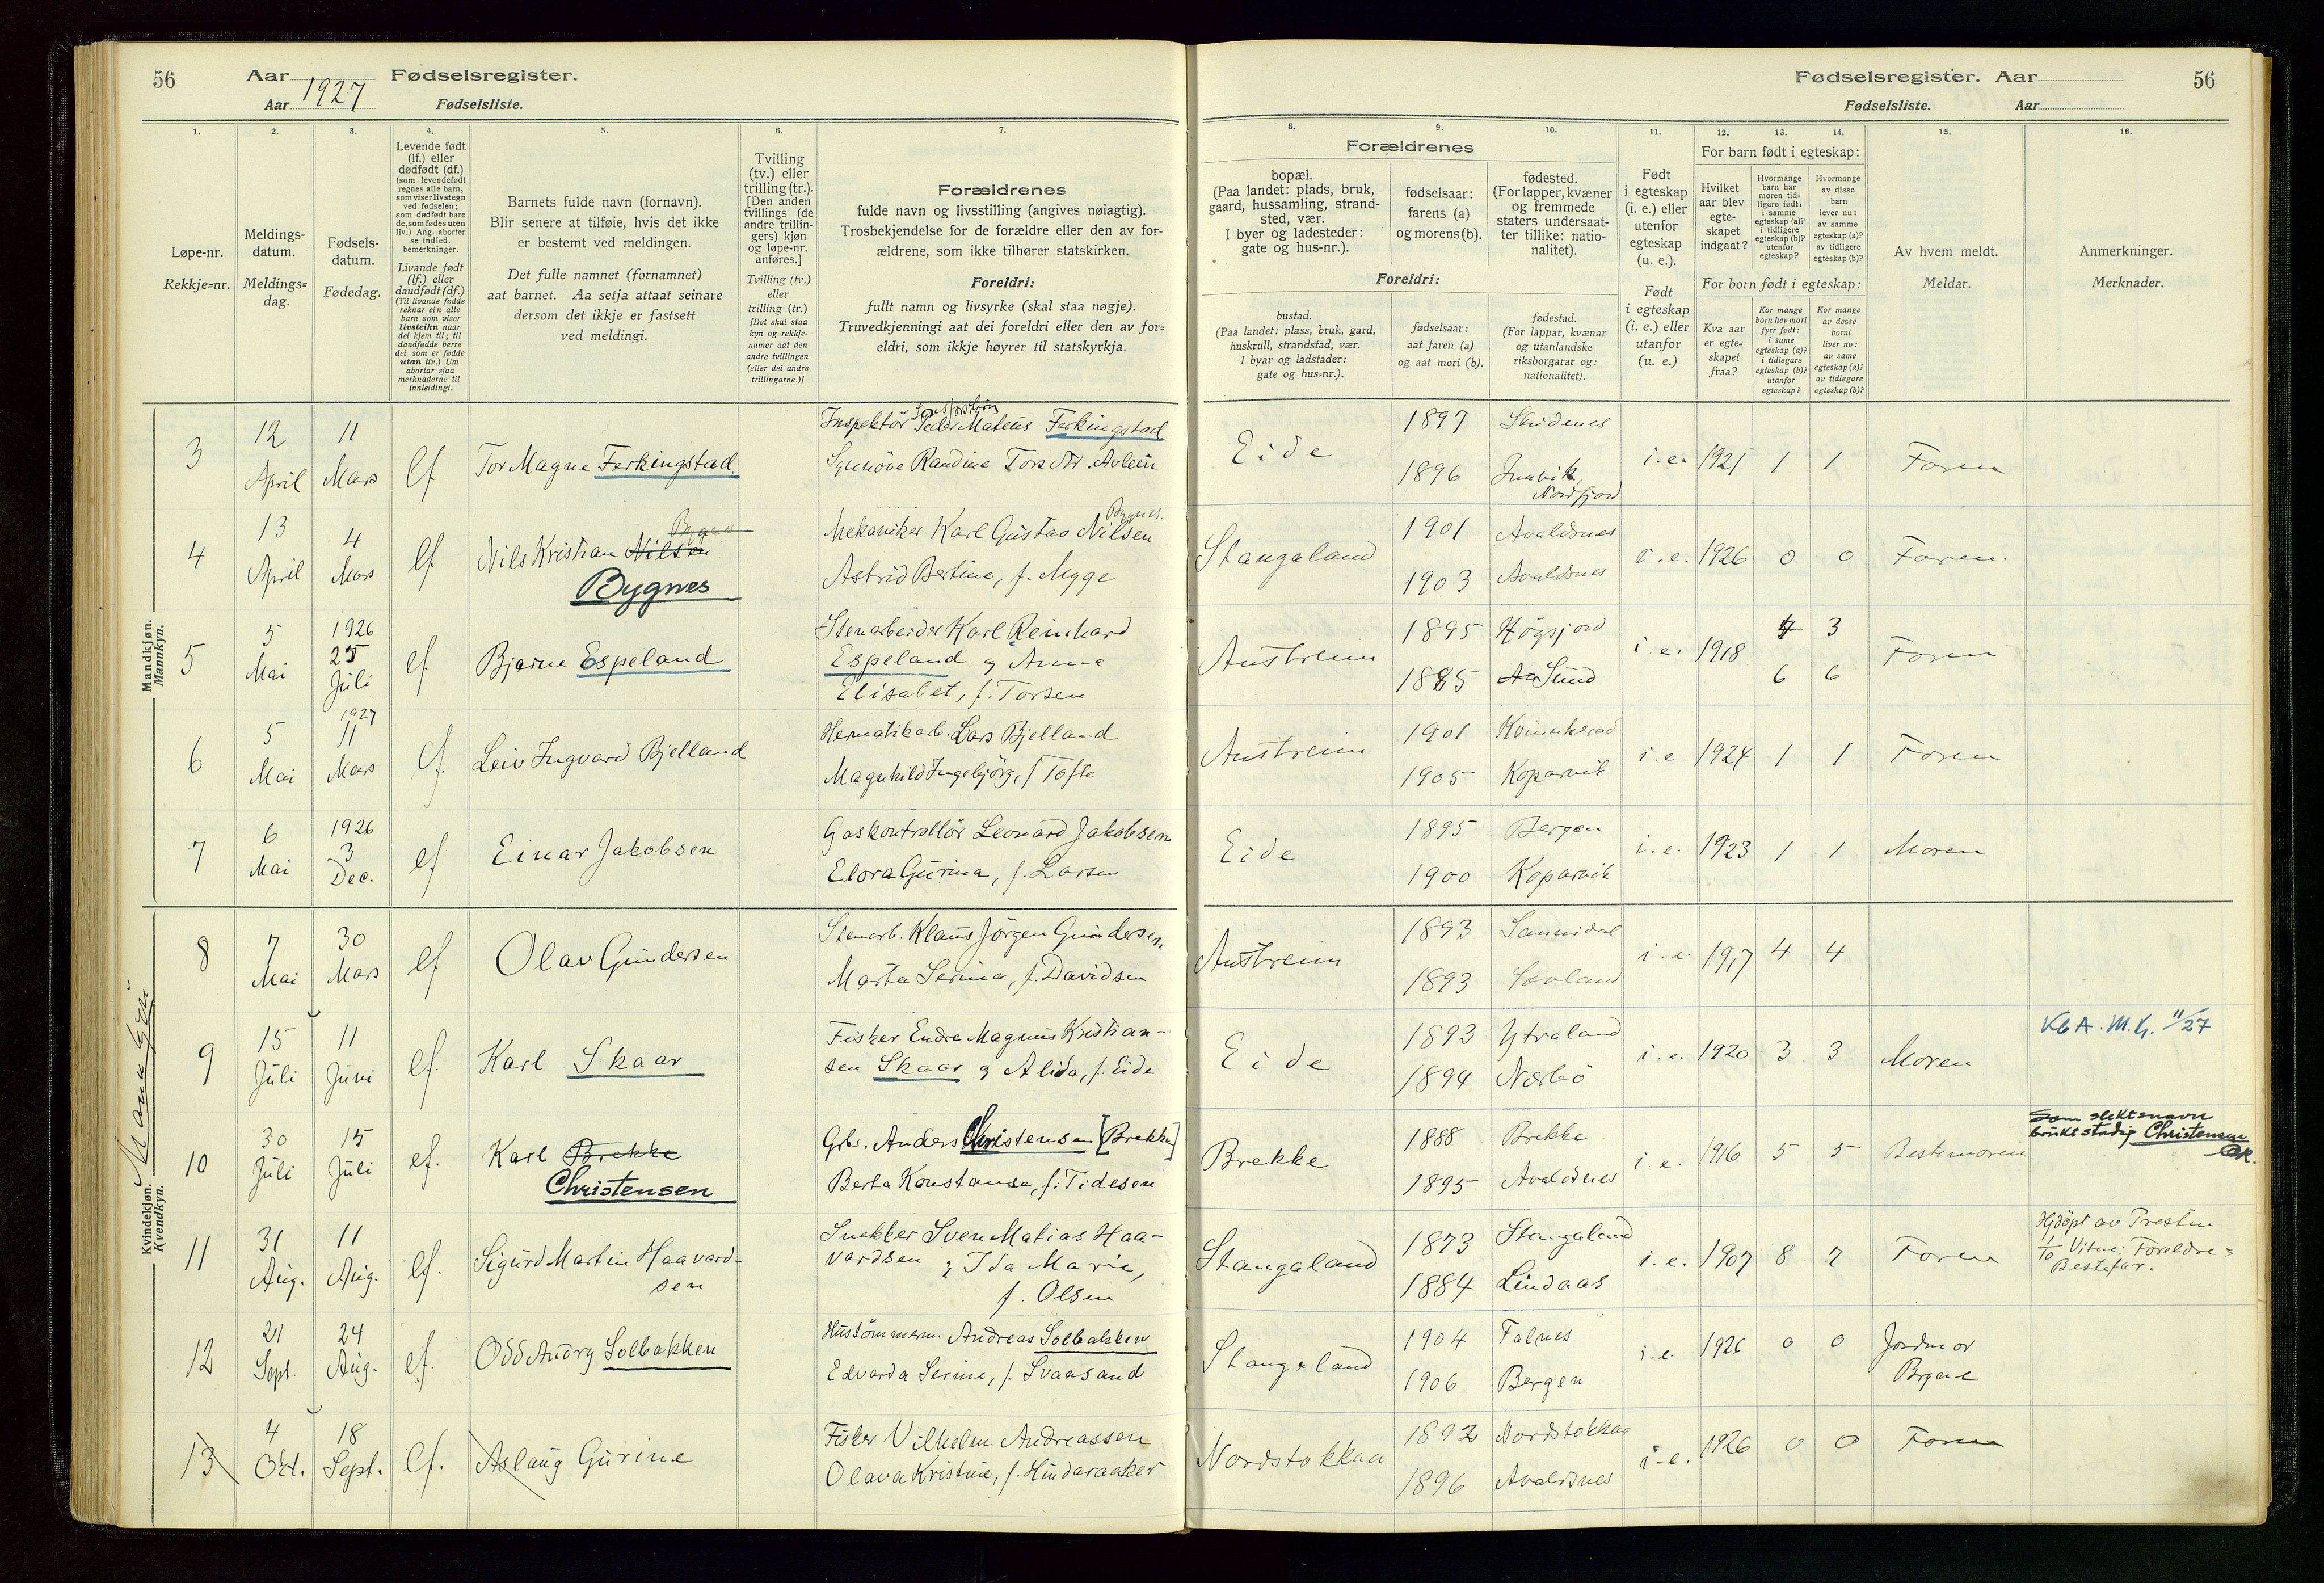 56 Aar 1927 Fødselsregister.
Aar Fødselsliste.
Fødselsregister. Aar 56
Fødselsliste. Aar
1. 2. 3. 4. 5. 6. 7. 8. 9. 10. 11. 12. 13. 14. 15. 16.
Løpe-nr.
Rekkje=nr.
Meldings-
datum.
Meldings=
dag.
Fødsels-
datum.
Fødedag.
Levende født
(lf.) eller
dødfødt (df.)
(som levendefødt
regnes alle barn,
som viser livstegn
ved fødselen;
som dødfødt bare
de, som fødes uten
liv.) Ang. aborter
se indled.
bemerkninger.
Livande født
(lf.) eller
daudfødt (df.)
(Til livande fødde
reknar ein alle
barn som viser
livsteikn naar
dei kjem til; til
daudfødde berre
dei som er fødde
utan liv.) Um
abortar sjaa
merknaderne til
innleidingi.
Barnets fulde navn (fornavn).
Blir senere at tilføie, hvis det ikke
er bestemt ved meldingen.
Det fulle namnet (fornamnet)
aat barnet. Aa setja attaat seinare
dersom det ikkje er fastsett
ved meldingi.
Tvilling
(tv.) eller
trilling (tr.).
[Den anden
tvillings (de
andre trillin-
gers) kjøn
og løpe-nr.
anføres.]
Tvilling (tv.)
eller
trilling (tr.)
[Det skal staa
kyn og rekkje-
numer aat den
andre tvillingen
(eller dei andre
trillingarne.)]
Forældrenes
fulde navn og livsstilling (angives nøiagtig).
Trosbekjendelse for de forældre eller den av for-
ældrene, som ikke tilhører statskirken.
Foreldri:
fullt namn og livsyrke (skal staa nøgje).
Truvedkjenningi aat dei foreldri eller den av for=
eldri, som ikkje høyrer til statskyrkja.
Forældrenes
bopæl.
(Paa landet: plads, bruk,
gaard, hussamling, strand-
sted, vær.
I byer og ladesteder:
gate og hus-nr.).
fødselsaar:
farens (a)
og morens (b).
fødested.
(For lapper, kvæner
og fremmede
staters undersaat-
ter tillike: natio-
nalitet).
Foreldri:
bustad.
(Paa landet: plass, bruk, gard,
huskrull, strandstad, vær.
I byar og ladstader:
gate og hus=nr.).
fødselsaar:
aat faren (a)
og aat mori (b).
fødestad.
(For lappar, kvænar
og utanlandske
riksborgarar og:
nationalitet).
Født
i egteskap
(i. e.) eller
utenfor
egteskap
(u. e.).
Født
i egteskap
(i. e.) eller
utanfor
(u. e.)
For barn født i egteskap:
Hvilket
aar blev
egte-
skapet
indgaat?
Hvormange
barn har
moren tid-
ligere født:
i samme
egteskap (a)?
i tidligere
egteskap (b)?
utenfor
egteskap?
Hvormange
av disse
barn
lever nu:
av samme
egteskap (a)?
av tidligere
egteskap (b)?
For born født i egteskap:
Kva aar
er egte=
skapet
fraa?
Kor mange
born hev mori
fyrr født:
i same
egteskap (a)?
i tidlegare
egteskap (b)?
utanfor
egteskap?
Kor mange
av desse
borni
liver no:
av same
egteskap (a)?
av tidlegare
egteskap (b)?
Av hvem meldt.
Meldar.
Anmerkninger.
Merknader.
Mandkjøn.
Mannkyn.
3 12 April 11 Mars lf Tor Magne Ferkingstad
Inspektør Peder Mateus Ferkingstad
Synnöve Randine Torsdtr. Avlein
Eide 1897 Skudenes
1896 Innvik, Nordfjord
i.e. 1921 1 1 Faren
4 13 April 4 Mars lf Nils Kristian Nilsen Bygnes
Bygnes
Mekaniker Karl Gustav Nilsen Bygnes.
Astrid Bertine, f. Mygge
Stangaland 1901 Avaldsnes
1903 Avaldsnes
i.e. 1926 0 0 Faren.
5 5 Mai 1926 25 Juli lf Bjarne Espeland
Stenarbeider Karl Reinhard
Espeland og Anna
Elisabet, f. Torsen
Austreim 1895 Högsjord
1885 Sund
i.e. 1918 4 3
6 6
Faren
6 5 Mai 1927 11 Mars lf. Leiv Ingvard Bjelland
Hermatikarb. Lars Bjelland
Magnhild Ingebjörg, f Tofte
Austreim 1901 Kvinnherad
1905 Koparvik
i.e 1924 1 1 Faren
7 6 Mai 1926 3 Dec. lf Einar Jakobsen
Gaskontrollör Leonard Jakobsen
Elora Gurina, f. Larsen
Eide 1895 Bergen
1900 Koparvik
i.e. 1923 1 1 Moren
Mannkyn
Kvindekjøn.
Kvendkyn.
8 7 Mai 30 Mars lf Olav Gundersen
Stenarb. Klaus Jörgen Gundersen
Marta Serina, f. Davidsen
Austreim 1893 Sannidal
1893 Sævland
i.e. 1917 4 4
9 15 Juli 11 Juni lf. Karl Skaar
Fisker Endre Magnus Kristian-
sen Skaar og Alida, f. Eide
Eide 1893 Ytraland
1894 Nærbö
i.e. 1920 3 3 Moren
Kb A. M.G. 11/27
10 30 Juli 15 Juli lf. Karl Brekke
Christensen
Gbr. Anders Christensen [Brekke]
Berta Konstanse, f. Tidesen
Brekke 1888 Brekke
1895 Avaldsnes
i.e. 1916 5 5 Bestemoren
Som slektsnavn
brukt stadig Christensen
11 31 Aug. 11 Aug. lf. Sigurd Martin Haavard-
sen
Snekker Sven Matias Haa-
vardsen og Ida Marie,
f. Olsen
Stangaland 1873 Stangaland
1884 Lindaas
i.e. 1907 8 7 Faren
Hjdöpt av Presten
1/10 Vitne: Foreldre &
Bestefar.
12 21 Sept. 24 Aug. lf. Odd Andry Solbakken
Hustömmerm. Andreas Solbakken
Edvarda Serine, f. Svaasand
Stangaland 1904 Falnes
1906 Bergen
i.e. 1926 0 0 Jordmor
Brgne
13 4 Okt. 18 Sept. lf. Aslaug Gurine
Fisker Vilhelm Andreassen
Olava Kristine, f. Hindaraaker
Nordstokkaa 1892 Nordstokkaa
1896 Avaldsnes
i.e. 1926 0 0 Faren